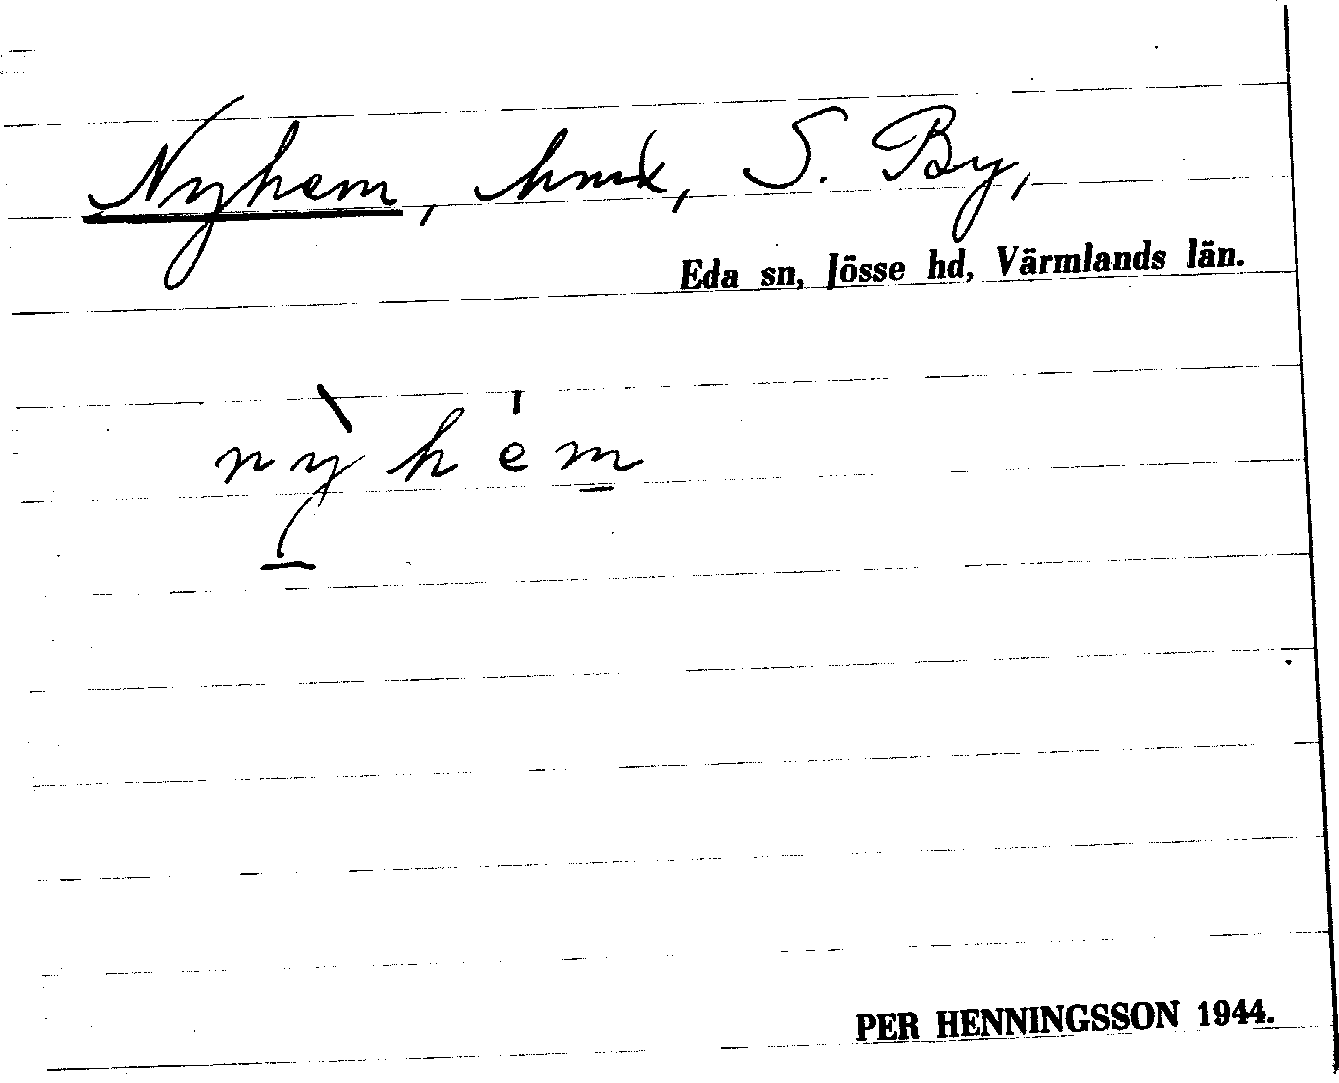 Nyhem, hmd, S. By,
Eda sn, Jösse hd, Värmlands län.
nỳhém
PER HENNINGSSON 1944.